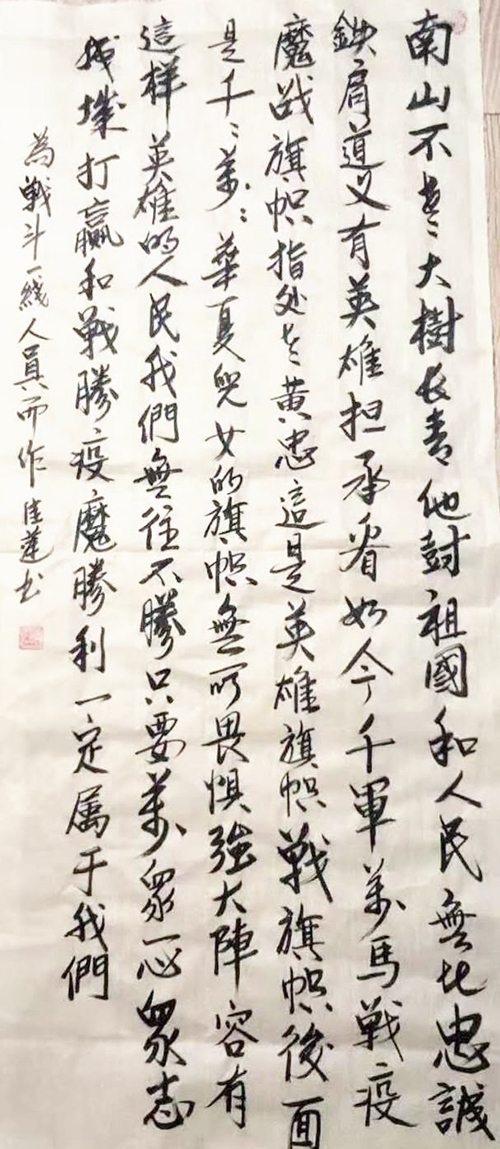 南山不老大樹长青他對祖國和人民無比忠誠
鉄肩道义有英雄担承看如今千軍萬馬戰疫
魔战旗帜指处老黄忠這是英雄旗帜戰旗帜後面
是千〻萬〻華夏兒女的旗帜無所畏惧強大陣容有
這样英雄的人民我們無往不勝只要萬眾一心眾志
成城打赢和戰勝疫魔勝利一定属于我們
為戰斗一綫人員而作佳蓮书